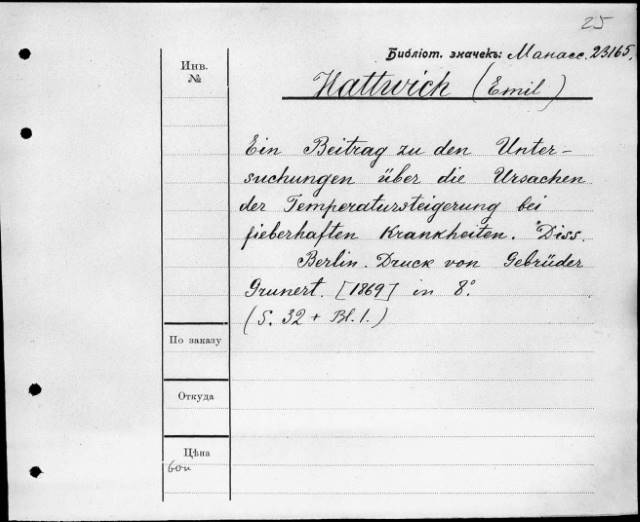 25
Библіот. значекъ: Манасс. 23165.
Инв.
№
Hattwich (Emil)
Ein Beitrag zu den Unter-
suchungen über die Ursachen
der Temperatursteigerung bei
fieberhaften Krankheiten. Diss.
Berlin. Druck von Gebrüder
Grunert. [1869] in 8°.
(S. 32 + Bl. 1.)
По заказу
Откуда
Цѣна